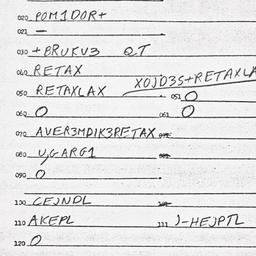 020 POM1DOR+
021 —
030 +BRUKV3 QT
040 RETAX
050 RETAXLAX XOJD3S+RETAXLA
051 O
060 O 061 O
070 AVER3MDIK3RETAX
080 U,GARG1
090 O
100 CEJNDL
110 AKEPL 111 J-HEJPTL
120 O